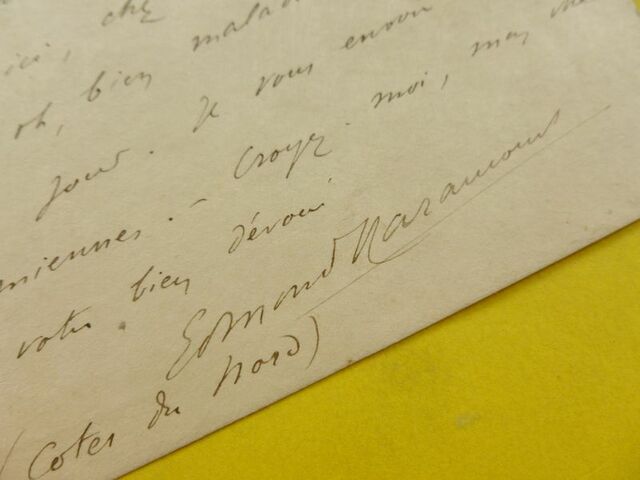 ici, chez
oh, bien malad
jour. Je vous envoi
miennes. - Croyez-moi, mon che
votre bien dévoué
Edmond Haraucourt
(Cotes du Nord)